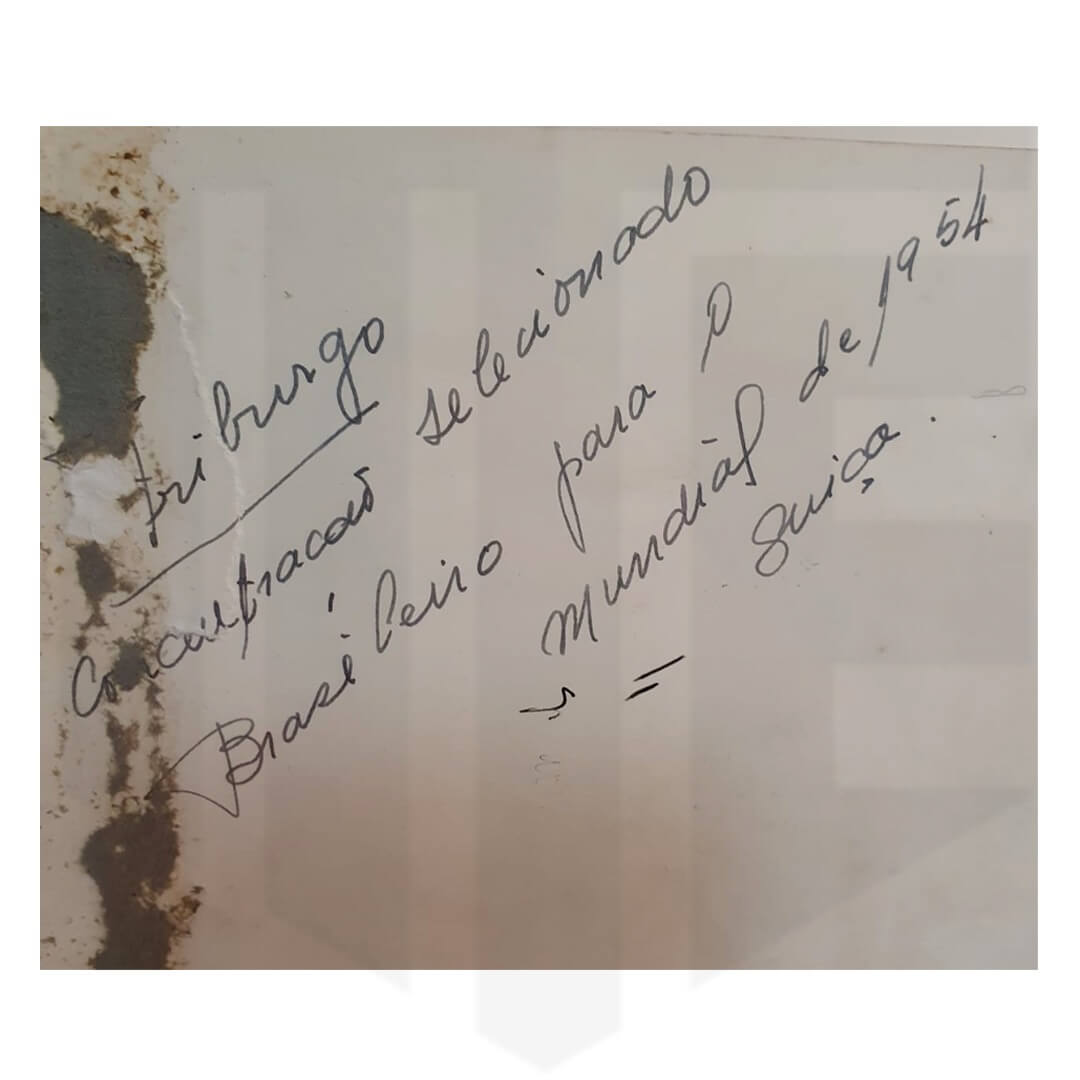 Friburgo
Concentracaõ selecionado
Brasileiro para o
Mundiál de 1954
Suiça.